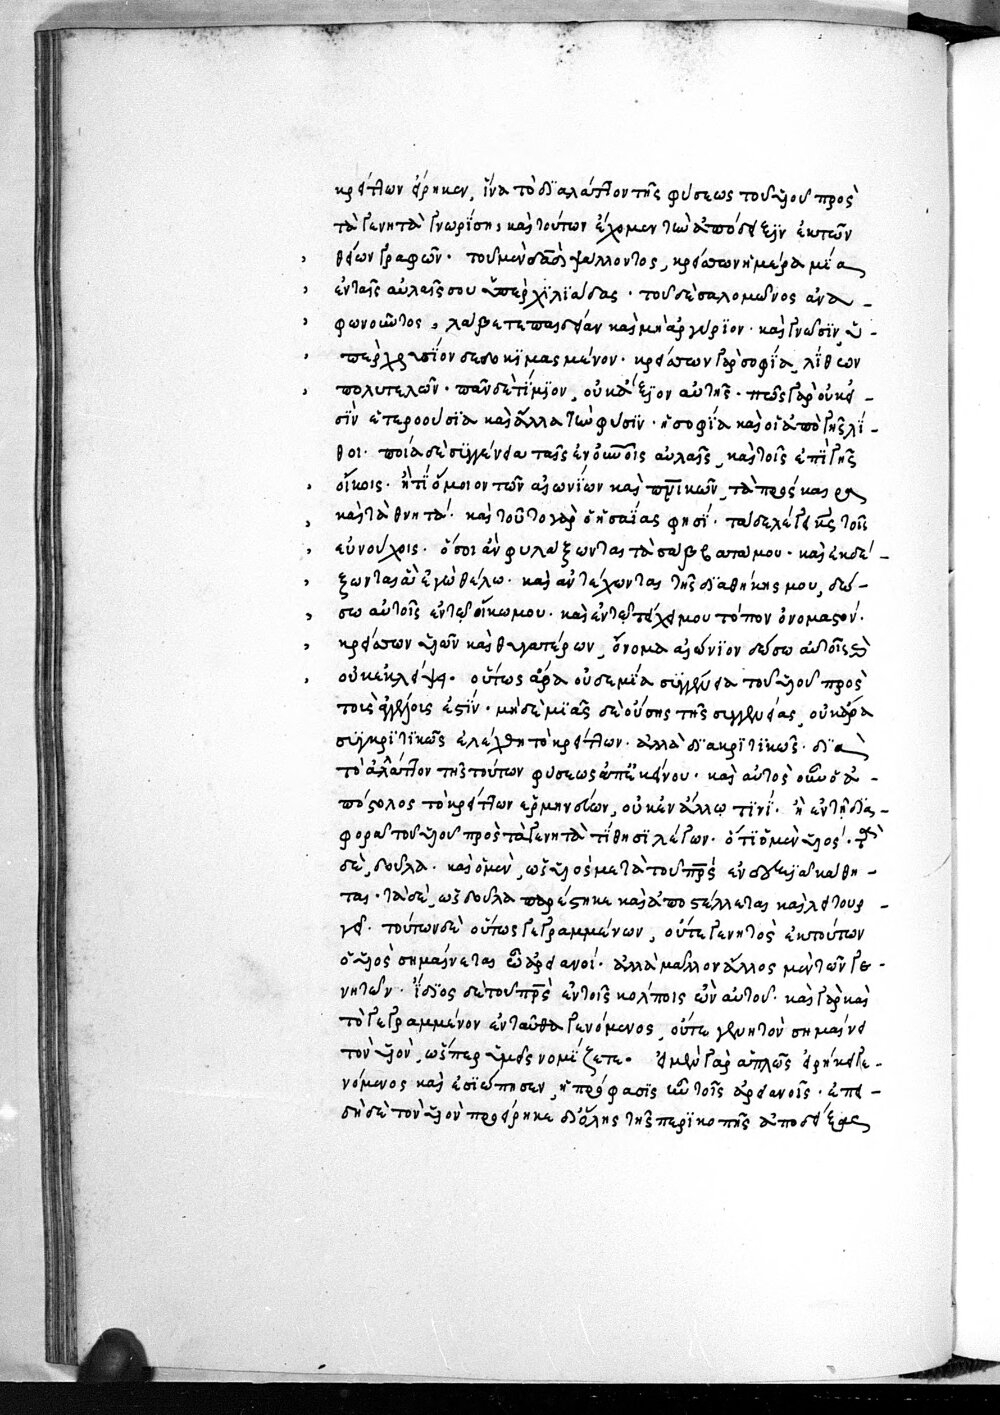 κρείττων εἴρηκεν, ἵνα τὸ διαλάττον τῆς φύσεως τοῦ υἱοῦ πρὸς
τὰ γενητὰ γνωρίση, καὶ τούτων ἔχομεν τὴν ἀπόδειξιν ἐκ τῶν
θείων γραφῶν· τοῦ μὲν δαδ ψάλλοντος, κρείσσων ἡμέρα μία
ἐν ταῖς αὐλαῖς σου ὑπὲρ χιλιάδας· τοῦ δὲ σαλομῶνος ἀνα-
φωνοῦντος, λάβετε παιδείαν καὶ μὴ ἀργύριον· καὶ γνῶσιν ὑ-
πὲρ χρυσίον δεδοκιμασμένον· κρείσσων γὰρ σοφία, λίθων
πολυτελῶν· πᾶν δὲ τίμιον, οὐκ ἄξιον αὐτῆς· πῶς γὰρ οὐκ εἰ-
σὶν ἑτεροούσια καὶ ἄλλα τὴν φύσιν· ἡ σοφία καὶ οἱ ἀπὸ γῆς λί-
θοι· ποία δὲ συγγένεια ταῖς ἐν οὐνοῖς αὐλαῖς, καὶ τοῖς ἐπὶ γῆς
οἴκοις· ἢ τί ὅμοιον τῶν αἰωνίων καὶ πνικῶν, τὰ πρόσκαιρα
καὶ τὰ θνητά· καὶ τοῦτο γὰρ ὁ ἡσαΐας φησί· τάδε λέγει κς τοῖς
εὐνούχοις· ὅσοι ἂν φυλάξωνται τὰ σάββατά μου· καὶ ἐκλέ-
ξωνται ἃ ἐγὼ θέλω· καὶ ἀντέχωνται τῆς διαθήκης μου, δώ-
σω αὐτοῖς ἐν τῷ οἴκω μου· καὶ ἐν τῷ τείχει μου τόπον ὀνομαστόν·
κρείσσων υἱῶν καὶ θυγατέρων, ὄνομα αἰώνιον δώσω αὐτοῖς καὶ
οὐκ ἐκλείψει· οὕτως ἄρα οὐδεμία συγγένεια τοῦ υἱοῦ πρὸς
τοὺς ἀγγέλοις ἐστίν· μηδεμιᾶς δὲ οὔσης τῆς συγγενείας, οὐκ ἄρα
συγκριτικῶς ἐλέχθη τὸ κρείττων· ἀλλὰ διακριτικῶς· διὰ
τὸ ἀλλάττον τῆς τούτων φύσεως ἀπ' ἐκείνου· καὶ αὐτὸς οὖν ὁ ἀ-
πόστολος τὸ κρείττων ἑρμηνεύων, οὐκ ἐν ἄλλω τινί· ἢ ἐν τῇ δια-
φορᾷ τοῦ υἱοῦ πρὸς τὰ γενητὰ τίθησι λέγων· ὅτι ὁ μὲν υἱός· τὰ
δὲ, δοῦλα· καὶ ὁ μὲν, ὡς υἱὸς μετὰ τοῦ πρς ἐν δεξιᾷ κάθη-
ται· τὰ δὲ, ὡς δοῦλα παρέστηκε καὶ ἀποστέλλεται καὶ λειτουρ-
γεῖ· τούτων δὲ οὕτως γεγραμμένων, οὔτε γενητὸς ἐκ τούτων
ὁ υἱὸς σημαίνεται ὦ ἀρειανοί· ἀλλὰ μᾶλλον ἄλλος μὲν τῶν γε-
νητῶν· ἴδιος δὲ τοῦ πρς ἐν τοῖς κόλποις ὢν αὐτοῦ· καὶ γὰρ καὶ
τὸ γεγραμμένον ἐνταῦθα γενόμενος, οὔτε γενητὸν σημαίνει
τὸν υἱὸν, ὥσπερ ὑμεῖς νομίζετε· εἰ μὲν γὰρ ἁπλῶς εἰρήκει γε-
νόμενος καὶ ἐσιώπησεν, ἦ πρόφασις ἦν τοῖς ἀρειανοῖς· ἐπει-
δὴ δὲ τὸν υἱὸν προείρηκε δι' ὅλης τῆς περικοπῆς ἀποδείξας